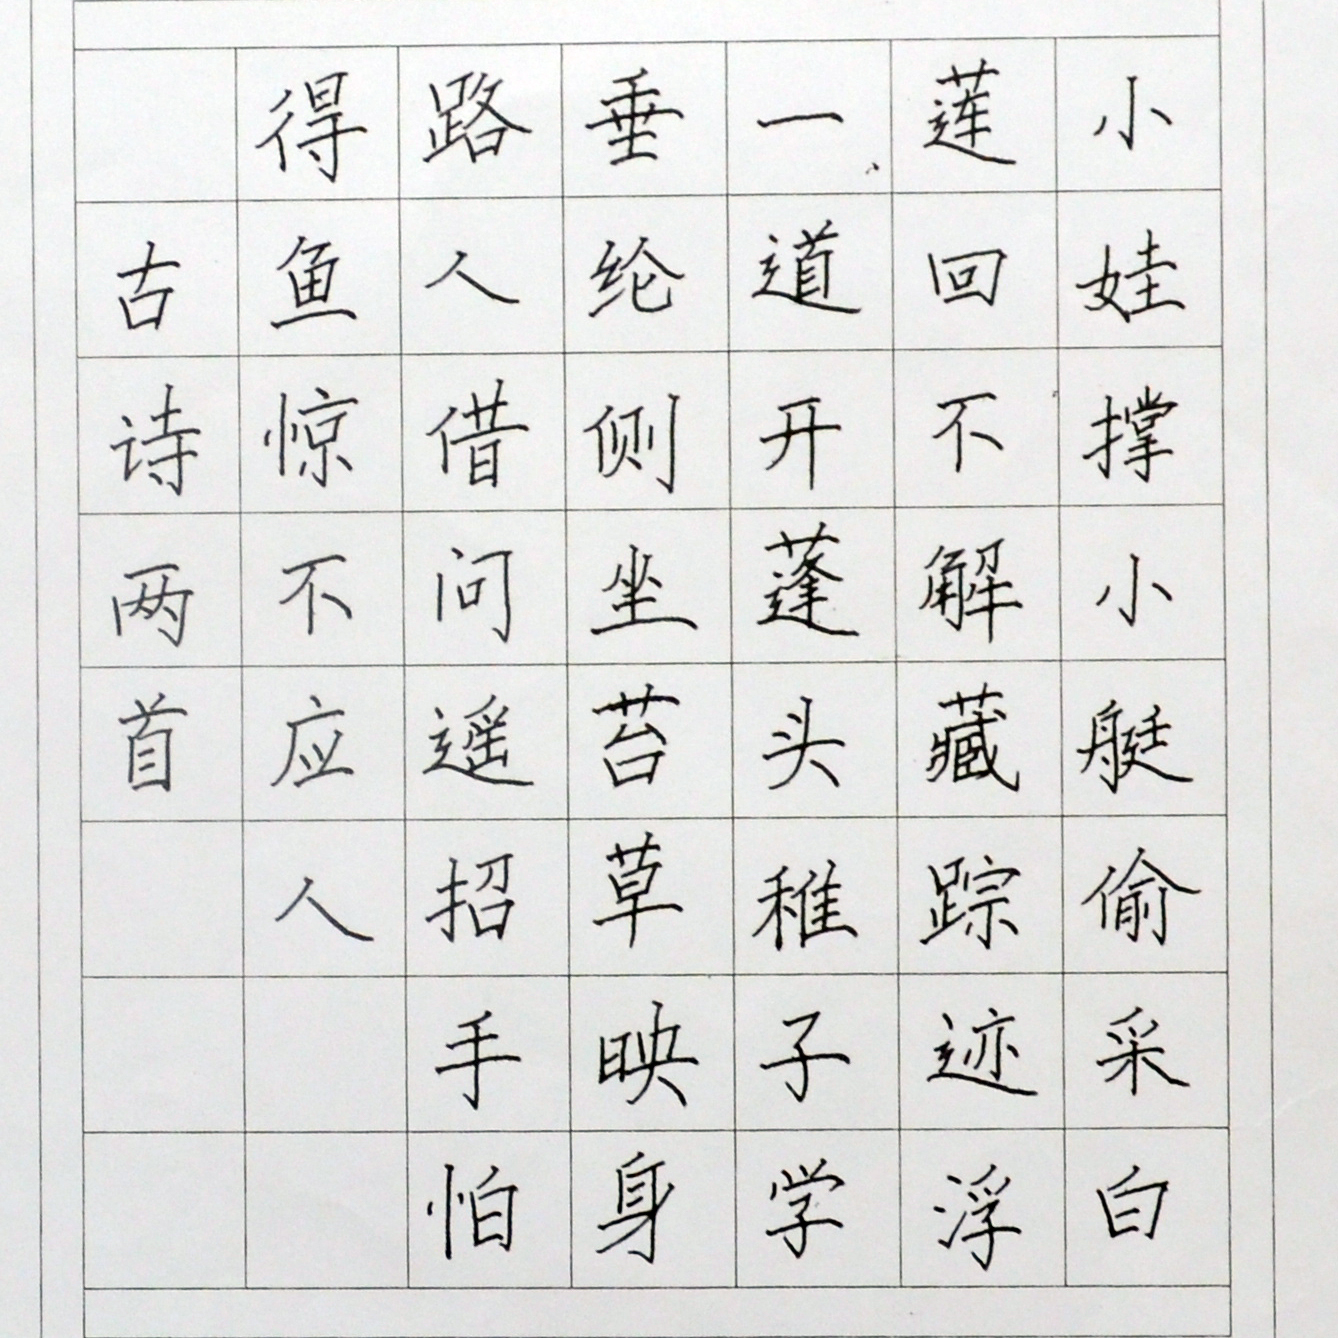 小娃撑小艇偷采白
莲回不解藏踪迹浮
一道开蓬头稚子学
垂纶侧坐苔草映身
路人借问遥招手怕
得鱼惊不应人
古诗两首